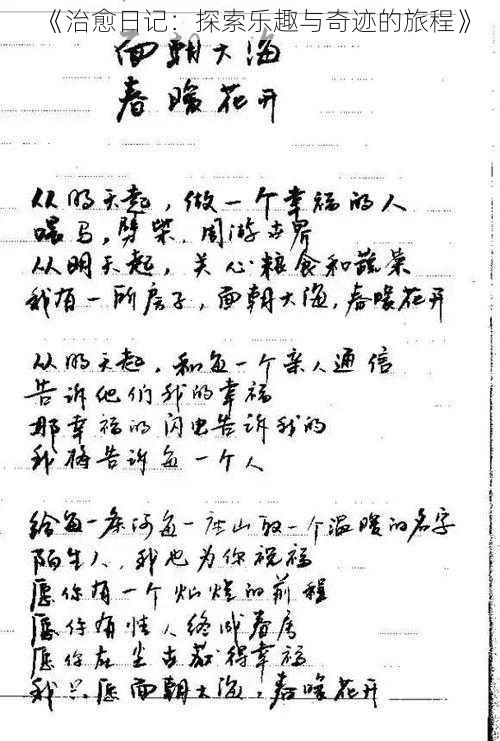 《治愈日记：探索乐趣与奇迹的旅程》
面朝大海
春暖花开
从明天起，做一个幸福的人
喂马，劈柴，周游世界
从明天起，关心粮食和蔬菜
我有一所房子，面朝大海，春暖花开
从明天起，和每一个亲人通信
告诉他们我的幸福
那幸福的闪电告诉我的
我将告诉每一个人
给每一条河每一座山取一个温暖的名字
陌生人，我也为你祝福
愿你有一个灿烂的前程
愿你有情人终成眷属
愿你在尘世获得幸福
我只愿面朝大海，春暖花开